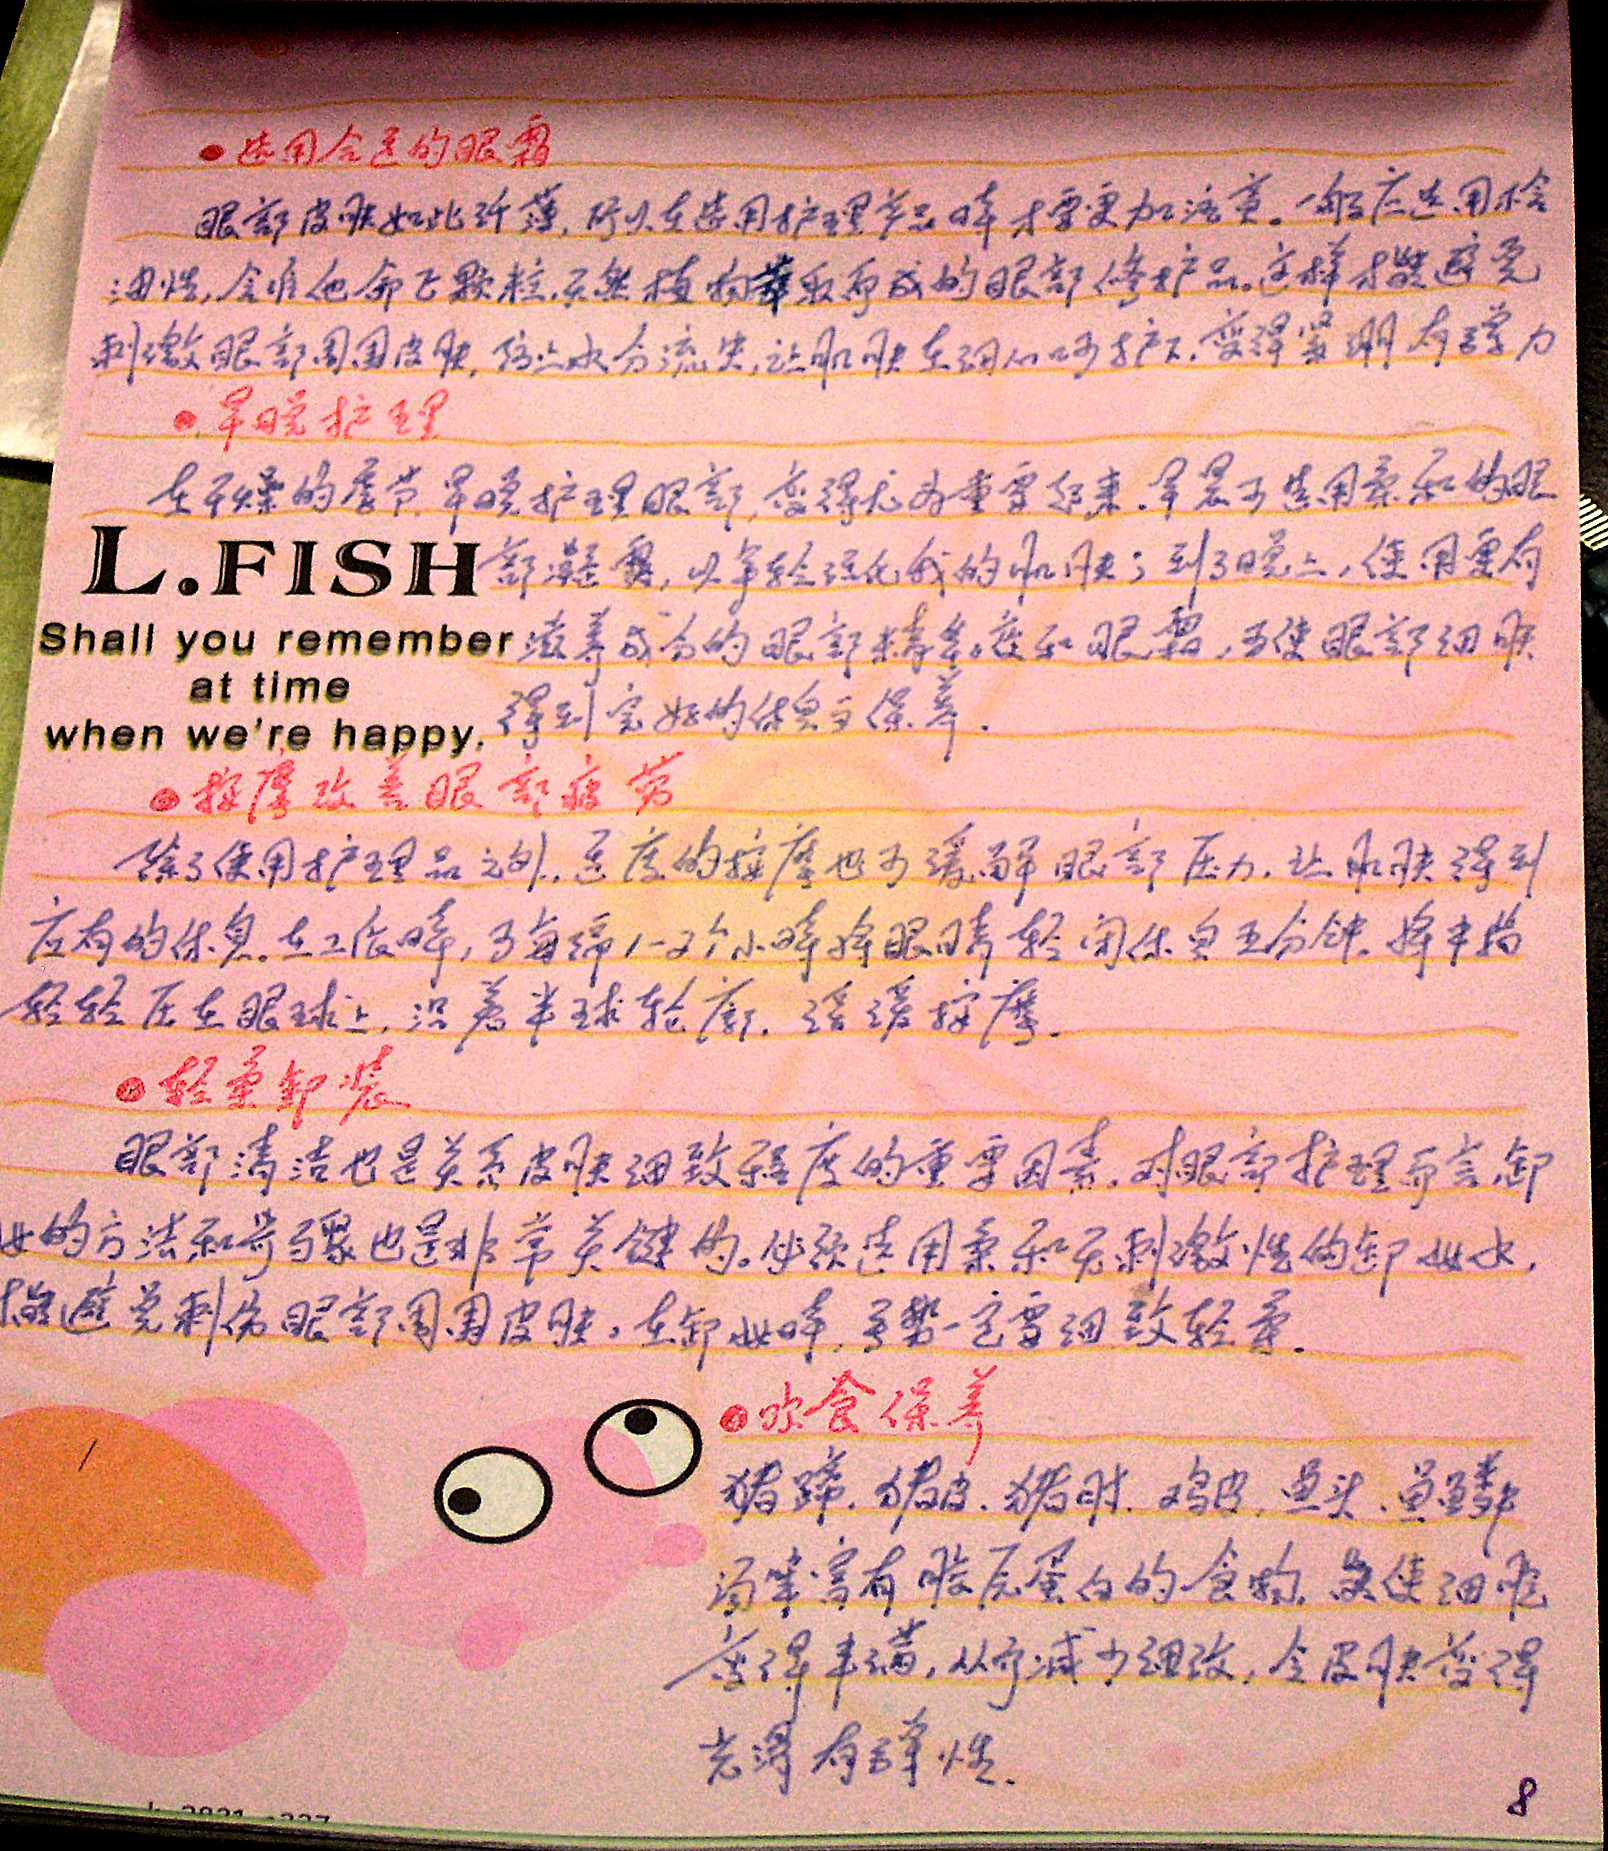 •选用合适的眼霜
眼部皮肤如此纤薄,所以在选用护理产品时才需更加注意。一般应选用不含
油性,含维他命E颗粒,天然植物萃取而成的眼部修护产品。这样才能避免
刺激眼部周围皮肤,防止水分流失,让肌肤在细心呵护下,变得紧绷有弹力
•早晚护理
在干燥的季节,早晚护理眼部,变得尤为重要起来.早晨可选用柔和的眼
部凝露,以年轻活化我的肌肤;到了晚上,使用更有
滋养成分的眼部精华液和眼霜,可使眼部细肤
得到完好的休息与保养.
L.FISH
Shall you remember
at time
when we're happy.
•按摩改善眼部疲劳
除了使用护理品之外,适度的按摩也可缓解眼部压力.让肌肤得到
应有的休息.在工作时,可每隔1-2个小时将眼睛轻闭休息五分钟.将中指
轻轻压在眼球上,沿着半球轮廓.缓缓按摩.
•轻柔卸装
眼部清洁也是关系皮肤细致程度的重要因素.对眼部护理而言,卸
妆的方法和步骤也是非常关键的。必须选用柔和无刺激性的卸妆水,
才能避免刺伤眼部周围皮肤。在卸妆时,手势一定要细致轻柔.
•饮食保养
猪蹄.猪皮.猪肘.鸡皮,鱼头.鱼鳞
等富有胶原蛋白的食物,能使细胞
变得丰满,从而减少细纹,令皮肤变得
光滑有弹性.
8